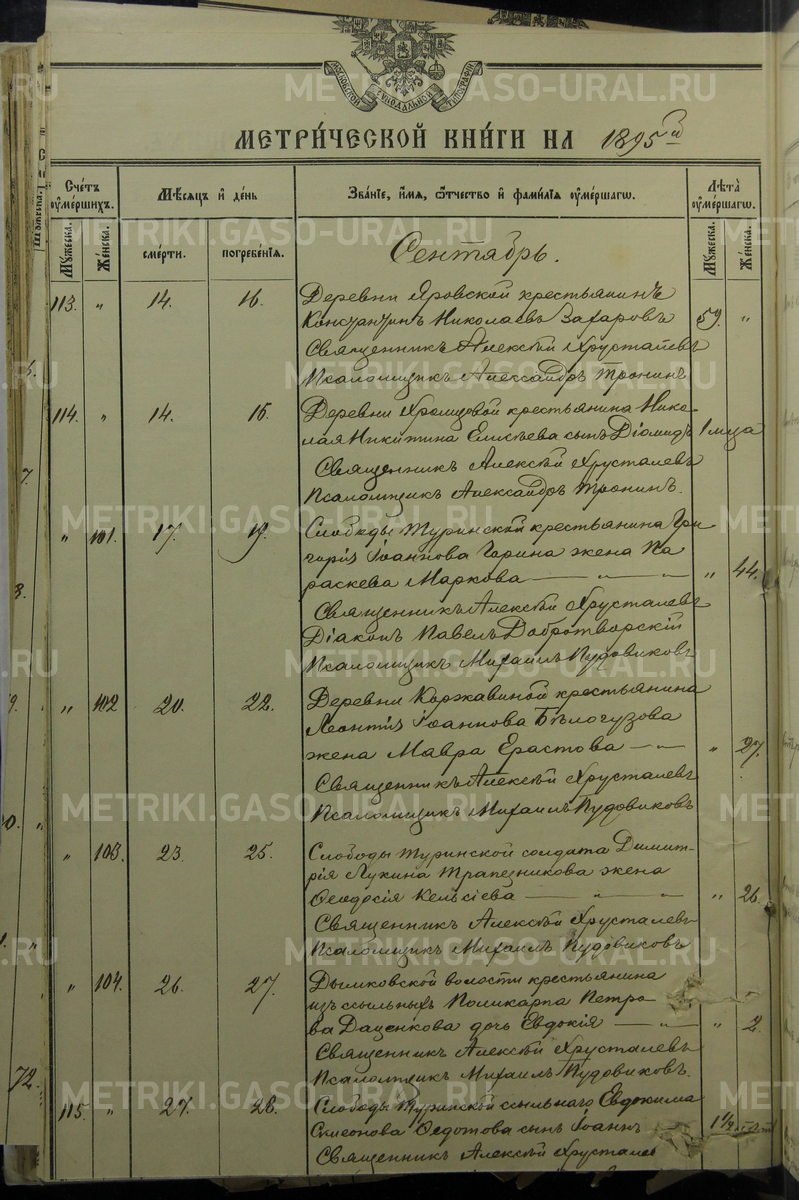 МОСКОВСКОЙ СѴНОДАЛЬНОЙ ТИПОГРАФІИ
МЕТРИ́ЧЕСКОЙ КНИ́ГИ НА 1895й
Сче́тъ ᲂу҆ме́ршихъ. Мѣ́сяцъ и҆ де́нь Зва́нїе, и҆́мя, ѻ҆́тчество и҆ фамѝлїя ᲂу҆ме́ршагѡ. Лѣ́та ᲂу҆ме́ршагѡ.
Мꙋ́жеска. Же́нска. сме́рти. погребе́нїя. Мꙋ́жеска. Же́нска.
Сентябрь.
113. " 14. 16. Деревни Яровской крестьянинъ
Константинъ Николаевъ Захаровъ 59. "
Священникъ Алексѣй Хрусталевъ
Псаломщикъ Александръ Тронинъ
114. " 14. 15. Деревни Храмцовой крестьянина Нико
лая Никитина Елисѣева сынъ Діомидъ 1 мца
Священникъ Алексѣй Хрусталевъ
Псаломщикъ Александръ Тронинъ.
" 101. 17. 19. Слободы Туринской крестьянина Гри
горія Іоаннова Горина жена Па
раскева Маркова — " — " " 44.
Священникъ Алексѣй Хрусталевъ
Діаконъ Павелъ Добротворскій
Псаломщикъ Михаилъ Пудовиковъ
" 102 20. 22. Деревни Коржавиной крестьянина
Леонтія Іоаннова Бѣлогузова
жена Мавра Ерастова — " — " 27.
Священникъ Алексѣй Хрусталевъ
Псаломщикъ Михаилъ Пудовиковъ
" 103. 23. 25. Слободы Туринской солдата Димит-
рія Лукина Трапезникова жена
Ѳеодосія Кельсіева — " — " " 26.
Священникъ Алексѣй Хрусталевъ
Псаломщикъ Михаилъ Пудовиковъ
" 104. 26. 27. Дымковской волости крестьянина
изъ ссыльныхъ Поликарпа Петро
ва Даценкова дочь Евдокія — " — " 2.
Священникъ Алексѣй Хрусталевъ
Псаломщикъ Михаилъ Пудовиковъ.
115. " 27. 28. Слободы Туринской ссыльнаго Евдокима
Симеонова Ѳедотова сынъ Іоаннъ — 1½
Священникъ Алексѣй Хрусталев
METRIKI.GASO-URAL.RU